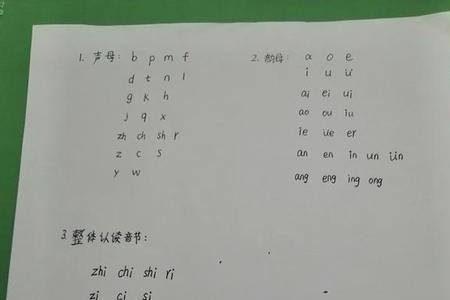 1. 声母: b p m f
d t n l
g k h
j q x
zh ch sh r
z c s
y w
2. 韵母: a o e
i u ü
ai ei ui
ao ou iu
ie üe er
an en in un ün
ang eng ing ong
3. 整体认读音节:
zhi chi shi ri
zi ci si